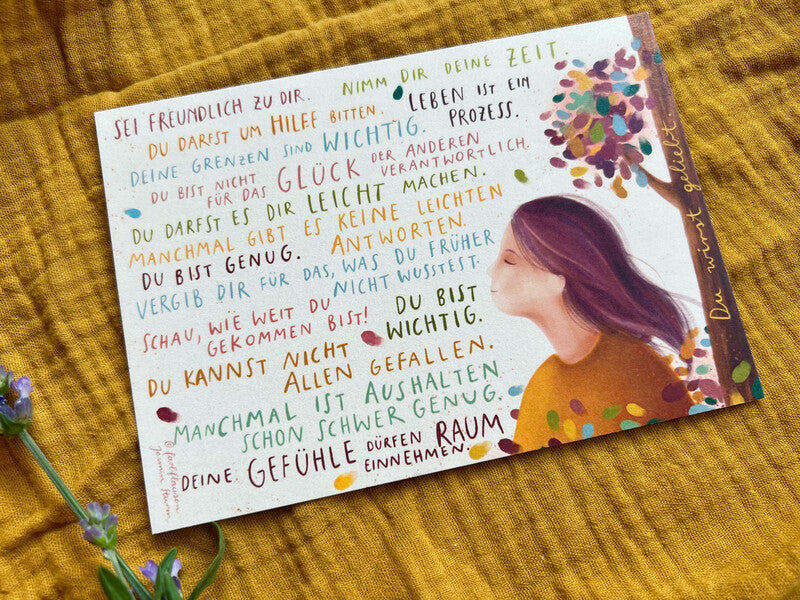 SEI FREUNDLICH ZU DIR.
NIMM DIR DEINE ZEIT.
DU DARFST UM HILFE BITTEN.
LEBEN IST EIN
PROZESS.
DEINE GRENZEN SIND WICHTIG.
DU BIST NICHT
FÜR DAS GLÜCK DER ANDEREN
VERANTWORTLICH.
DU DARFST ES DIR LEICHT MACHEN.
MANCHMAL GIBT ES KEINE LEICHTEN
ANTWORTEN.
DU BIST GENUG.
VERGIB DIR FÜR DAS, WAS DU FRÜHER
NICHT WUSSTEST.
SCHAU, WIE WEIT DU
GEKOMMEN BIST!
DU BIST
WICHTIG.
DU KANNST NICHT
ALLEN GEFALLEN.
MANCHMAL IST AUSHALTEN
SCHON SCHWER GENUG.
DEINE GEFÜHLE DÜRFEN RAUM
EINNEHMEN.
Du wirst geliebt.